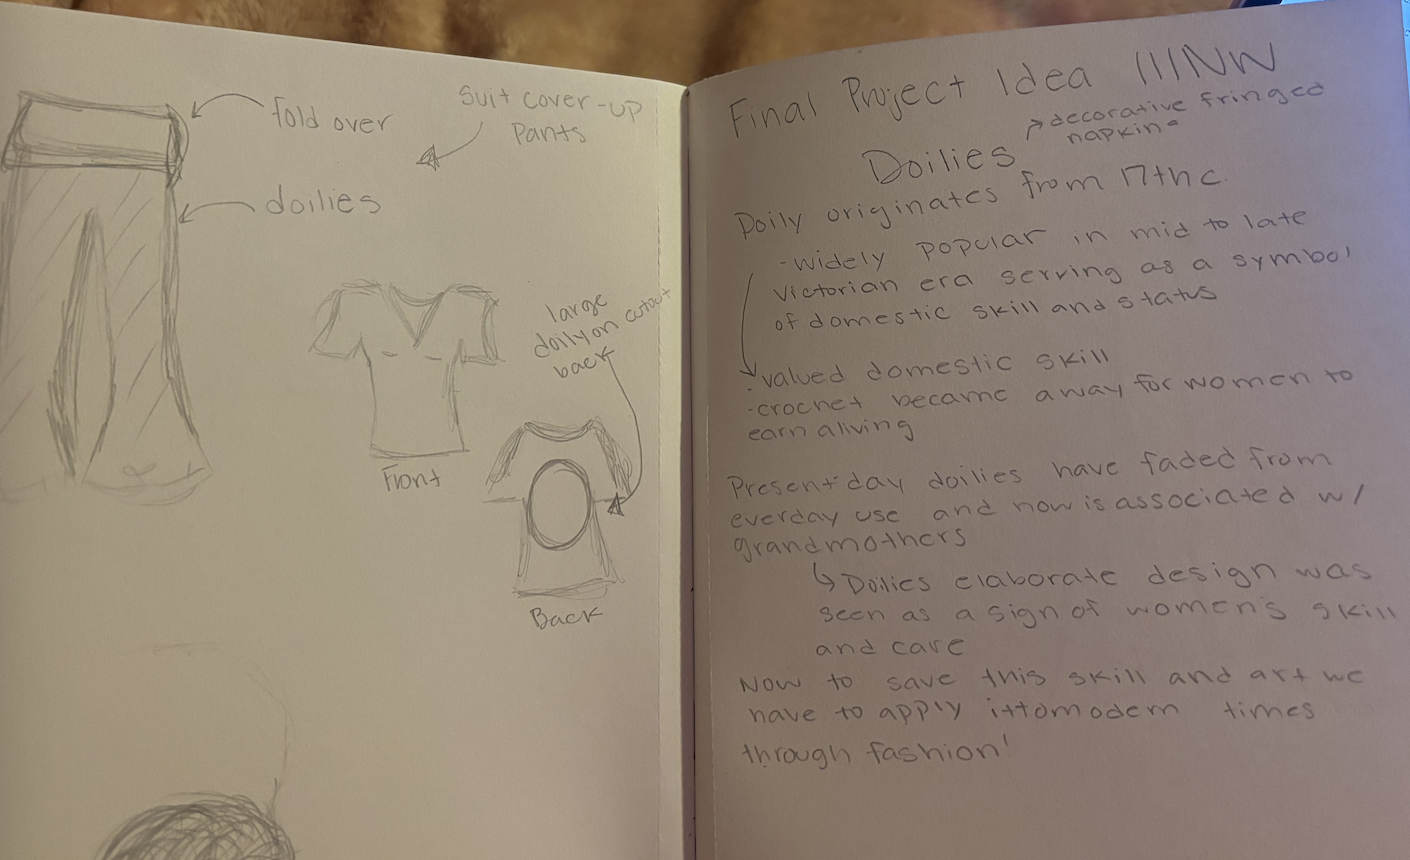 fold over
suit cover-up
pants
doilies
large
doily on cutout
back
Front
Back
Final Project Idea
decorative fringed
napkins
Doilies
Doily originates from 17th c.
-widely popular in mid to late
Victorian era serving as a symbol
of domestic skill and status
valued domestic skill
-crochet became away for women to
earn aliving
Present day doilies have faded from
everday use and now is associated w/
grandmothers
↳ Doilies elaborate design was
seen as a sign of women's skill
and care
Now to save this skill and art we
have to apply ittomodern times
through fashion!